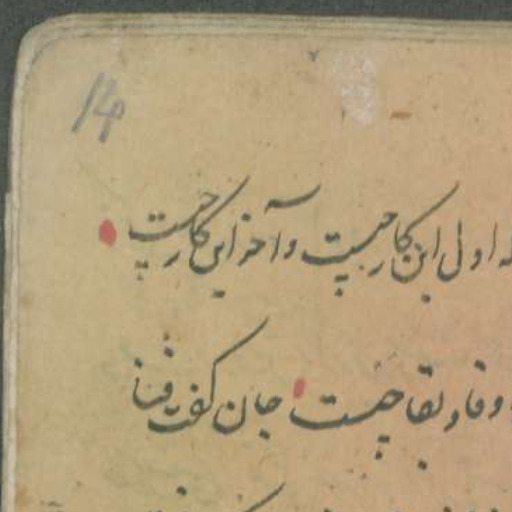 ۱۴
اول این کار چیست و آخر این کار چیست
وفا و بقا چیست جان گفت فنا